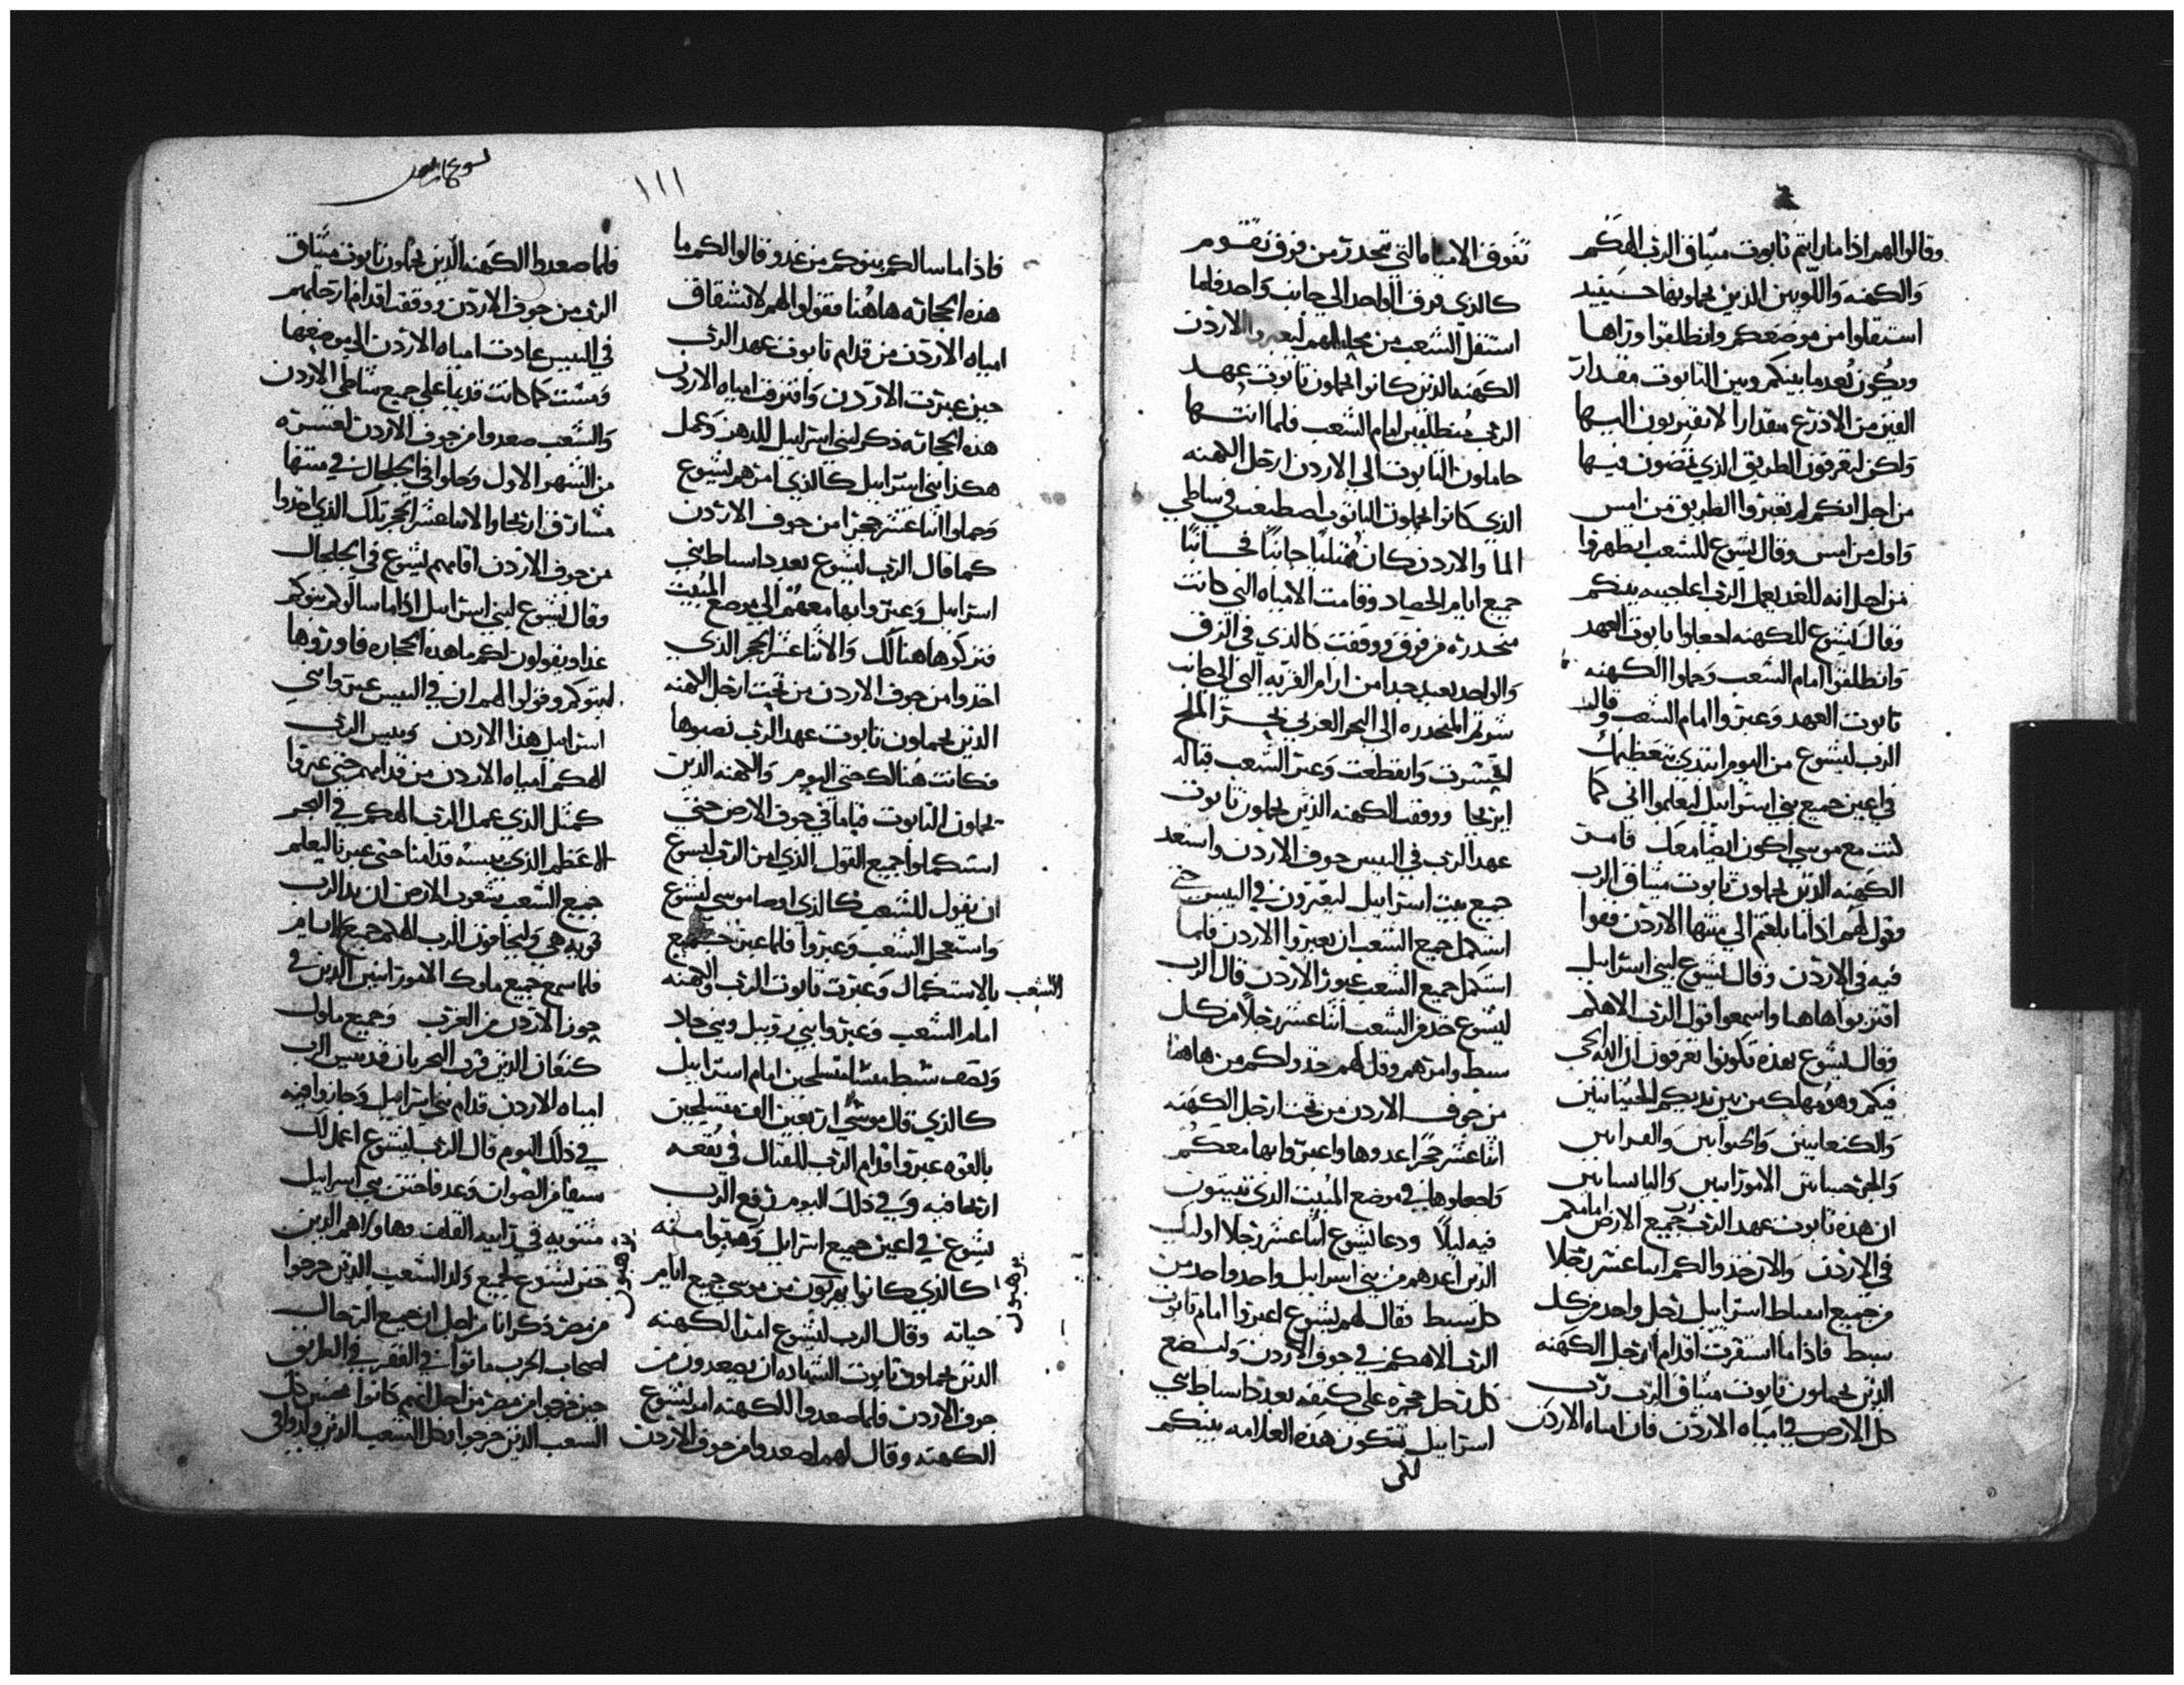 وقالوا لهم اذا ما رايتم تابوت ميثاق الرب الهكم
والكهنه واللويين الذين يحملونها حينيد
استقلوا من موضعكم وانطلقوا وراها
ويكون بعد ما بينكم وبين التابوت مقدار
الفين من الاذرع مقدارا لا تقتربون اليها
ولكن لتعرفون الطريق الذي تمضون فيها
من اجل انكم لم تعبروا الطريق من امس
واول من امس وقال يشوع للشعب اتطهروا
من اجل انه للغد يعمل الرب اعاجيبه بينكم
وقال يشوع للكهنه احملوا تابوت العهد
وانطلقوا امام الشعب وحملوا الكهنه
تابوت العهد وعبروا امام الشعب وقال
الرب ليشوع من اليوم ابتدي بتعظيمك
في اعين جميع بني اسراييل ليعلموا اني كما
كنت مع موسي اكون ايضا معك فامر
الكهنه الذين يحملون تابوت ميثاق الرب
وقول لهم اذا ما بلغتم الي منتها الاردن قفوا
فيه في الاردن وقال يشوع لبني اسراييل
اقتربوا هاهنا واسمعوا قول الرب الاهكم
وقال يشوع بهذه تكونوا تعرفون ان الله الحي
فيكم وهو مهلك من بين يديكم
والكنعانيين والحوانيين
الامورانيين واليابسانيين
ان هذه تابوت عهد الرب رب جميع الارض امامكم
في الاردن والان خذوا لكم اثنا عشر رجلا
من جميع اسباط اسراييل رجل واحد من كل
سبط فاذا ما استقرت اقدام ارجل الكهنه
الذين يحملون تابوت ميثاق الرب رب
كل الارض في امياه الاردن فان امياه الاردن
تفوق الامياه التي تحدر من فوق تقوم
كالذي فوق الواحد الي جانب واحد فلما
استقل الشعب من محلهم ليعبروا الاردن
الكهنه الذين كانوا يحملون تابوت عهد
الرب منطلقين امام الشعب فلما انتها
حاملون التابوت الي الاردن ارجل الكهنه
الذي كانوا يحملون التابوت اصطبغت في شاطي
الما والاردن كان ممتليا
جميع ايام الحصاد وقامت الامياه التي كانت
منحدره من فوق ووقفت كالذي في الزق
والواحد بعيد جدا من ادام القريه التي الي جانب
المنحدره الي البحر العربي بحر الملح
وانقطعت وعبر الشعب قباله
ايريحا ووقف الكهنه الذين يحملون تابوت
عهد الرب في اليبس جوف الاردن واستعد
جميع بيت اسراييل ليعبرون في اليبس حتي
استكمل جميع الشعب ان يعبروا الاردن فلما
استكمل جميع الشعب عبور الاردن قال الرب
ليشوع خذ من الشعب اثنا عشر رجلا من كل
سبط وامرهم وقل لهم خذوا لكم من هاهنا
من جوف الاردن من تحت ارجل الكهنه
اثنا عشر حجرا اعدوها واعبروا بها معكم
واجعلوها في موضع المبيت الذي تبيتون
فيه ليلا ودعا يشوع اثنا عشر رجلا اوليك
الذين اعدهم من بني اسراييل واحد واحد من
كل سبط فقال لهم يشوع اعبروا امام تابوت
الرب الاهكم في جوف الاردن وليضع
كل رجل حجره علي كتفه بعدد اسباط بني
اسراييل لتكون هذه العلامه بينكم
لكي
١١١
فاذا ما سالكم بنوكم من غد وقالوا لكم ما
هذه الحجاره هاهنا فقولوا لهم لانشقاق
امياه الاردن من قدام تابوت عهد الرب
حين عبرت الاردن وافترقت امياه الاردن
هذه الحجاره ذكر لبني اسراييل للدهر وعمل
هكذا بني اسراييل كالذي امرهم يشوع
وحملوا اثنا عشر حجرا من جوف الاردن
كما قال الرب ليشوع بعدد اسباط بني
اسراييل وعبروا بها معهم الي موضع المبيت
فتركوها هنالك والاثنا عشر الحجر الذي
اخذوا من جوف الاردن من تحت ارجل الكهنه
الذين يحملون تابوت عهد الرب نصبوها
فكانت هنالك حتي اليوم والكهنه الذين
يحملون التابوت قياما في جوف الارض حتي
استكملوا جميع القول الذي امر الرب ليشوع
ان يقول للشعب كالذي اوصا موسي ليشوع
واستعجل الشعب وعبروا فلما عبر جميع
الشعب بالاستكمال وعبرت تابوت الرب والكهنه
امام الشعب وعبروا بني روبيل وبني جاد
ونصف سبط منشا متسلحين امام اسراييل
كالذي قال موسي اربعين الف متسلحين
بالقوه عبروا قدام الرب للقتال في بقعه
اريحا فيه وفي ذلك اليوم رفع الرب
يشوع في اعين جميع اسراييل وهيبوا منه
كالذي كانوا يرهبون من موسي جميع ايام
يرهبون
حياته وقال الرب ليشوع امر الكهنه
الذين يحملون تابوت الشهاده ان يصعدون من
جوف الاردن فلما صعدوا الكهنه امر يشوع
الكهنه وقال لهم اصعدوا من جوف الاردن
فلما صعدوا الكهنه الذين يحملون تابوت ميثاق
الرب من جوف الاردن ووقف اقدام ارجلهم
في اليبس عادت امياه الاردن الي موضعها
ومشت كما كانت قديما علي جميع شاطي الاردن
والشعب صعدوا من جوف الاردن لعشره
من الشهر الاول وحلوا في الجلجال في منتها
مشارق اريحا والاثنا عشر الحجر تلك الذي اخذوا
من جوف الاردن اقامهم يشوع في الجلجال
وقال يشوع لبني اسراييل اذا ما سالوكم بنوكم
غدا ويقولون لكم ما هذه الحجاره فاوروها
لبنوكم وقولوا لهم ان في اليبس عبروا بني
اسراييل هذا الاردن ويبس الرب
الهكم امياه الاردن من قدامهم حتي عبروا
كمثل الذي عمل الرب الهكم في البحر
الاعظم الذي يبسه قدامنا حتي عبرنا ليعلم
جميع الشعب شعوب الارض ان يد الرب
قويه هي وليخافون الرب الهكم جميع الايام
فلما سمع جميع ملوك الامورانيين الذين في
جوز الاردن من الغرب وجميع ملوك
كنعان الذين قرب البحر بان قد يبس الرب
امياه الاردن قدام بني اسراييل وجازوا فيه
في ذلك اليوم قال الرب ليشوع اعمل لك
سيفا من الصوان وعد فاختن بني اسراييل
ختن يشوع لجميع ولد الشعب الذين خرجوا
من مصر ذكرانا من اجل ان جميع الرجال
اصحاب الحرب ماتوا في القفر في الطريق
حين خرجوا من مصر من اجل انهم كانوا مختنين كل
الشعب الذين خرجوا وكل الشعب الذين ولدوا في